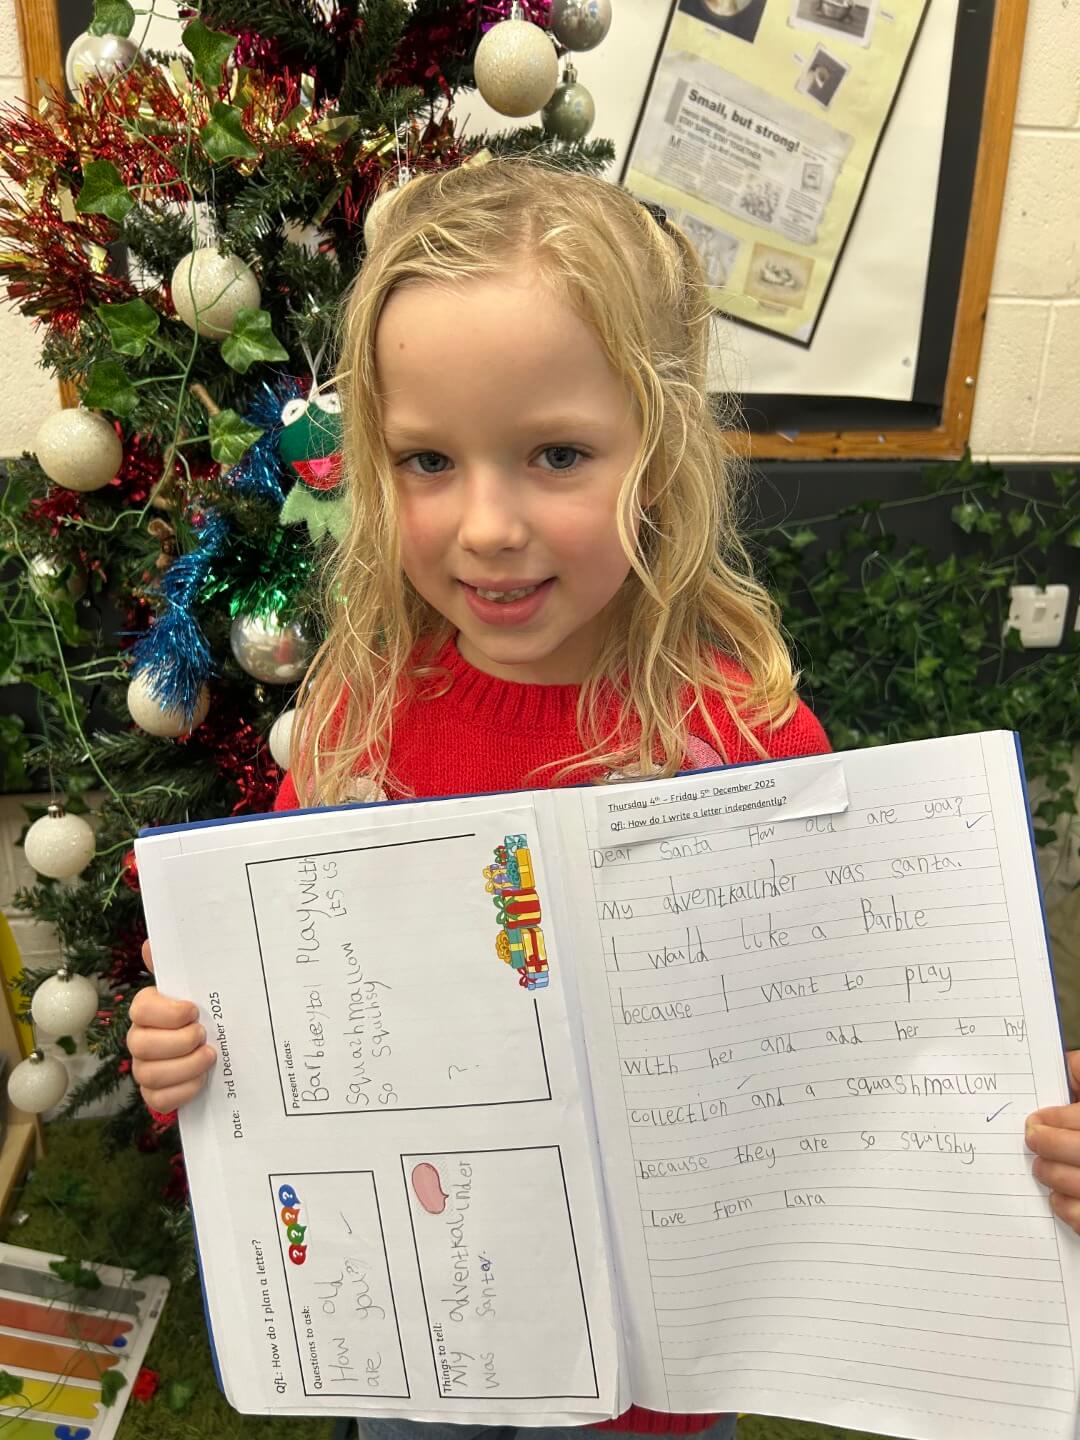 Small, but strong!
STAY SAFE, STAY TOGETHER
Thursday 4th – Friday 5th December 2025
QfL: How do I write a letter independently?
Dear Santa How old are you?
My adventkalinder was santa.
I would like a Barble
because I want to play
with her and add her to my
collection and a squashmallow
because they are so squishy.
Love from Lara
Date: 3rd December 2025
QfL: How do I plan a letter?
Present ideas:
Play with
its is
Squazhmallow
So Squihsy
?
Questions to ask:
How old
are you?
Things to tell:
My adventkalinder
was santa.